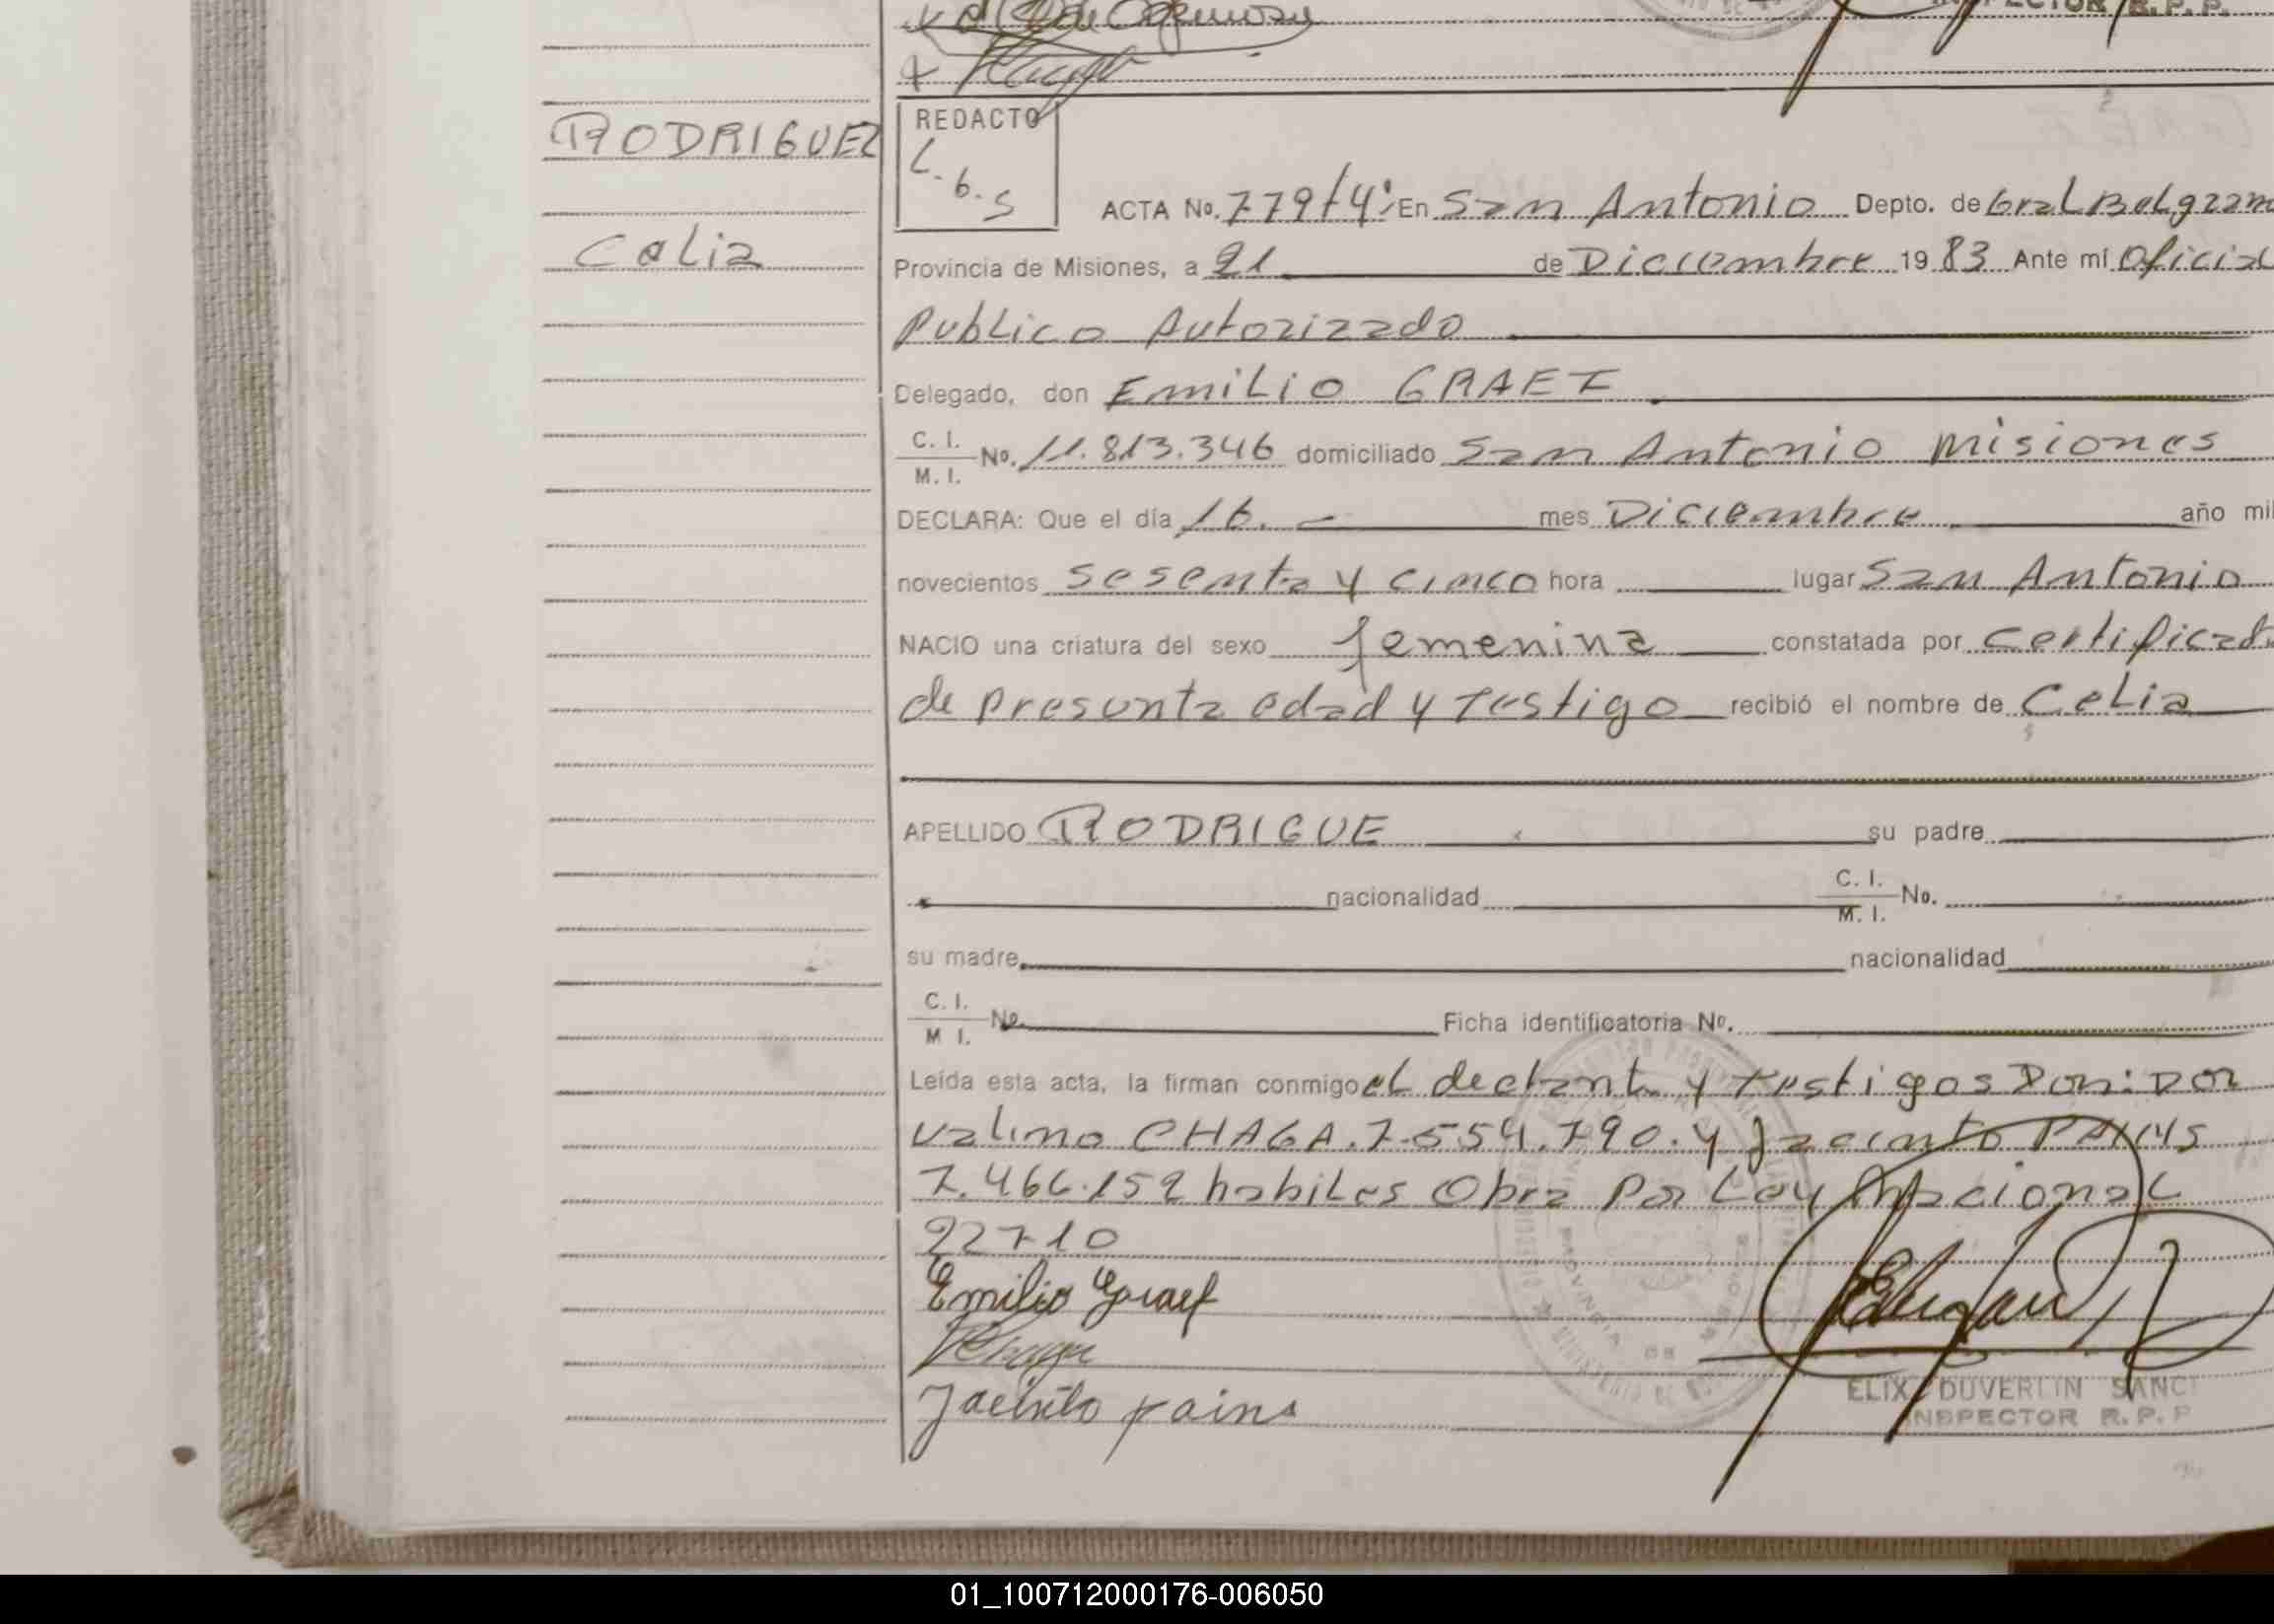 INSPECTOR R. P. P.
RODRIGUEZ
Celia
REDACTO
L. b. S
ACTA No. 779/4º: En San Antonio Depto. de Gral Belgrano
Provincia de Misiones, a 21 de Diciembre 1983 Ante mí Oficial
Publico Autorizado
Delegado, don Emilio GRAEF
C. I.
M. I. No. 11.813.346 domiciliado San Antonio Misiones
DECLARA: Que el día 16. – mes Diciembre año mil
novecientos sesenta y cinco hora lugar San Antonio
NACIO una criatura del sexo femenina constatada por Certificado
de presunta edad y testigo recibió el nombre de Celia
APELLIDO RODRIGUE su padre
nacionalidad C. I.
M. I. No.
su madre nacionalidad
C. I.
M I. No. Ficha identificatoria No.
Leída esta acta, la firman conmigo el declant y testigos Don: Dor
valino CHAGA. 7.554.790. y Jacinto PAINS
7.466.152 habiles Obra Por Ley Nacional
22710
Emilio Graef
Chaga
Jacinto pains
ELIX DUVERLIN SANC
INSPECTOR R. P. P
01_100712000176-006050